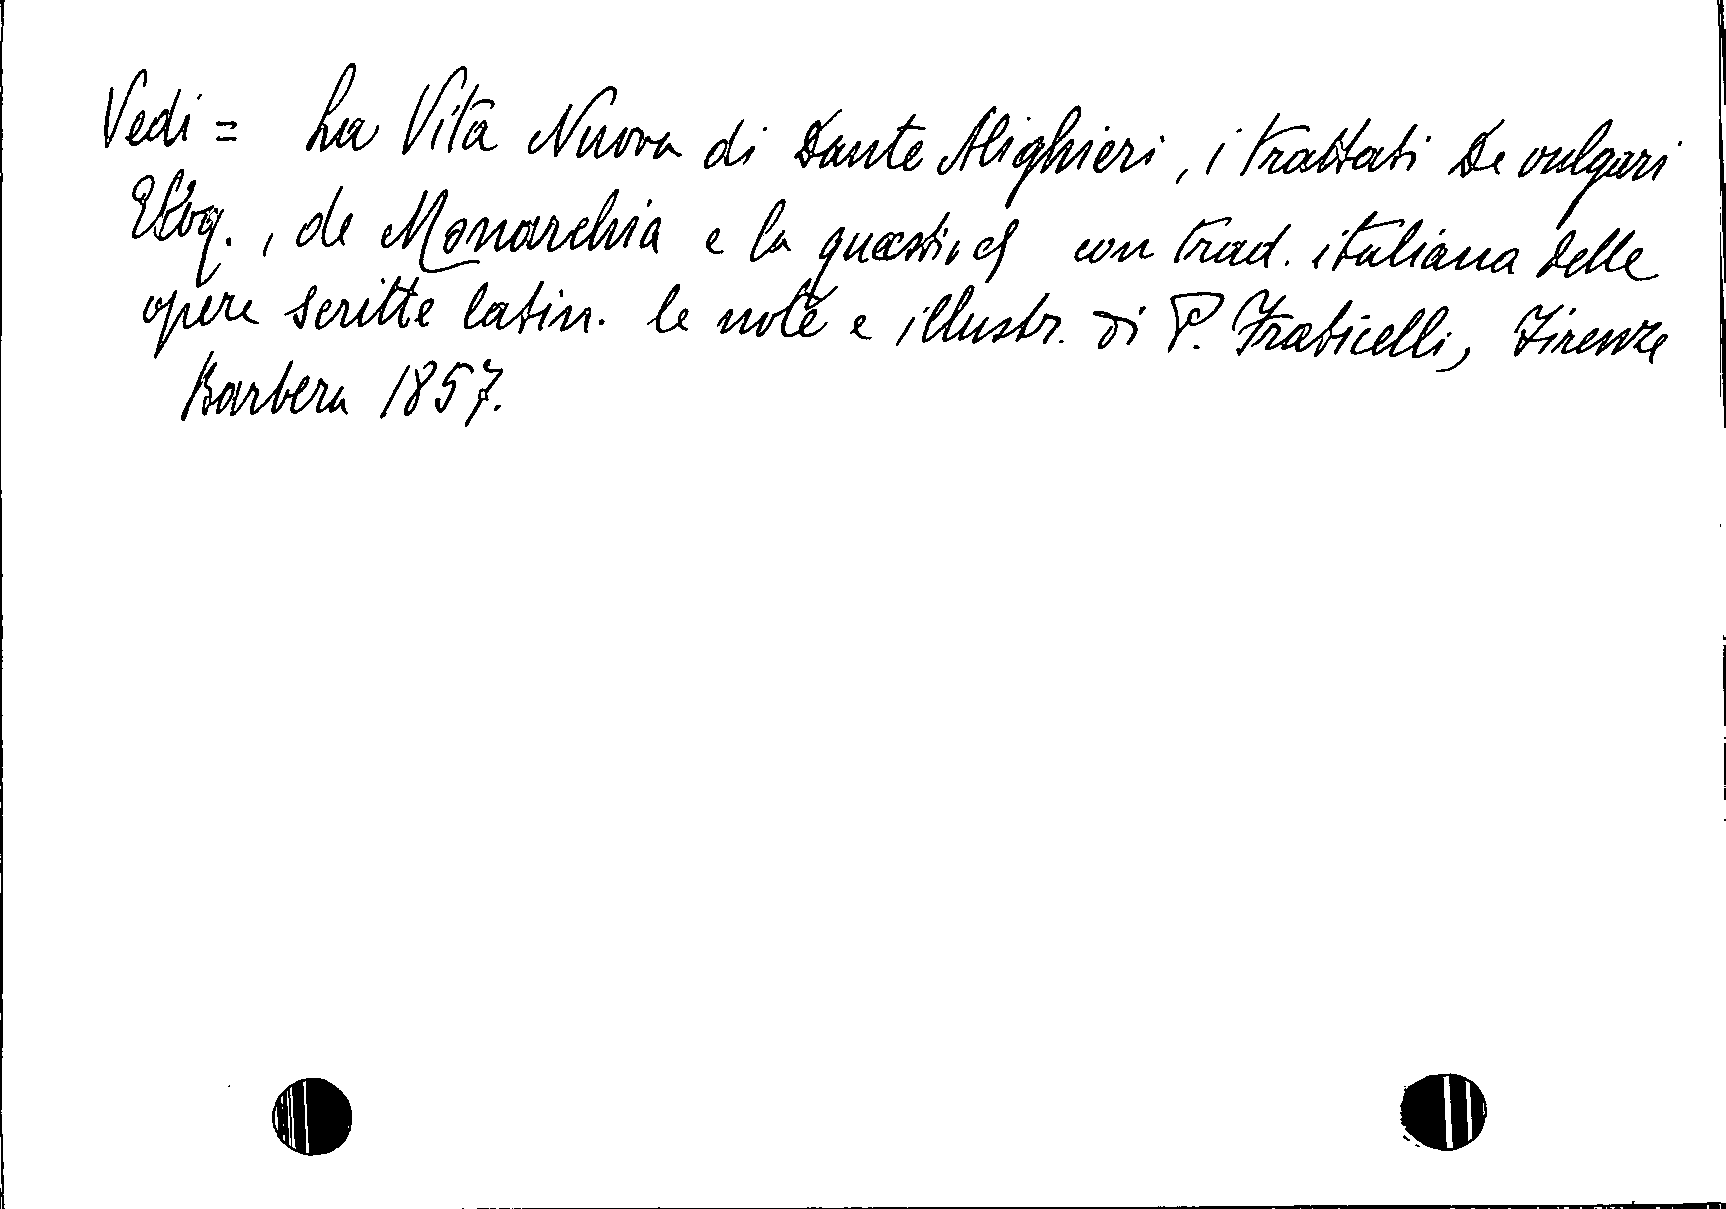 Vedi = La Vita Nuova di Dante Alighieri, i trattati De vulgari
Eloq., de Monarchia e la con trad. italiana delle
opere scritte latin. le note e illustr. di P. Fraticelli, Firenze
Barbera 1857.